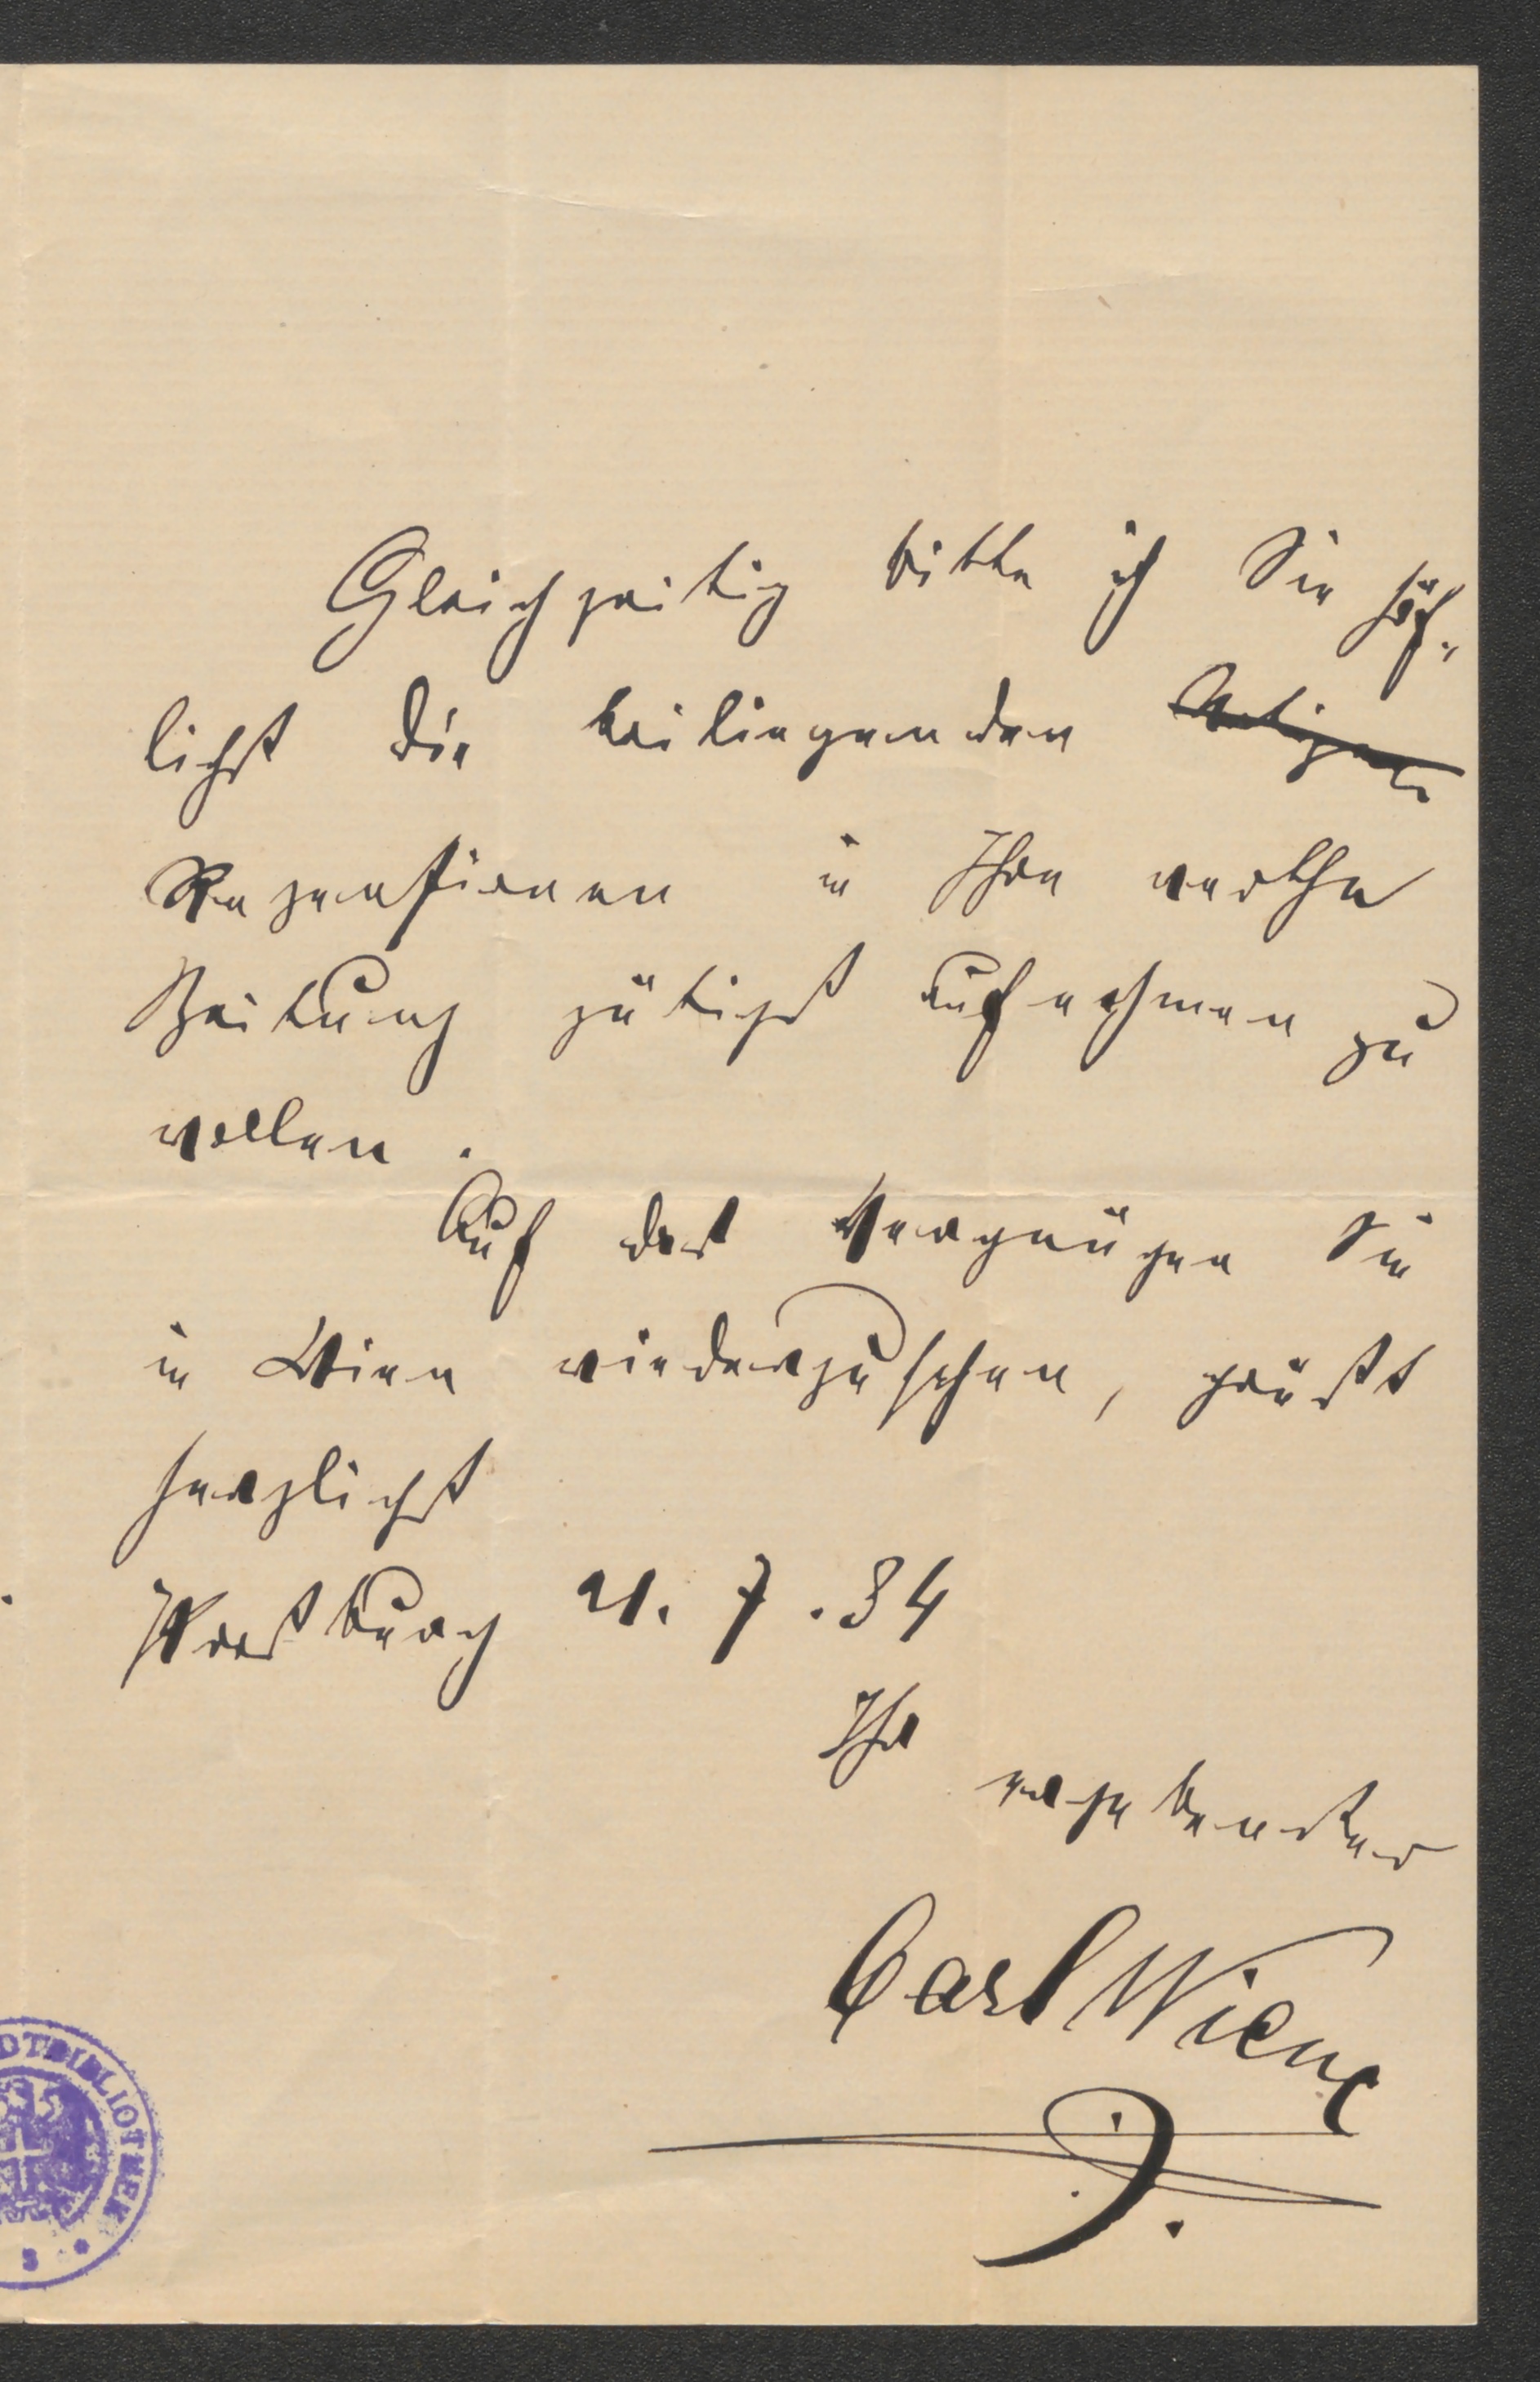 Gleichzeitig bitte ich Sie höf-
lichst die beiliegenden
Rezensionen in Ihre werthe
Zeitung gütigst aufnehmen zu
wollen.
Auf das Vergnügen Sie
in Wien wiederzusehen, grüßt
herzlichst
Preßburg 21. 7. 84
Ihr
ergebenster
Carl Wiene
DTBIBLIOTHEK